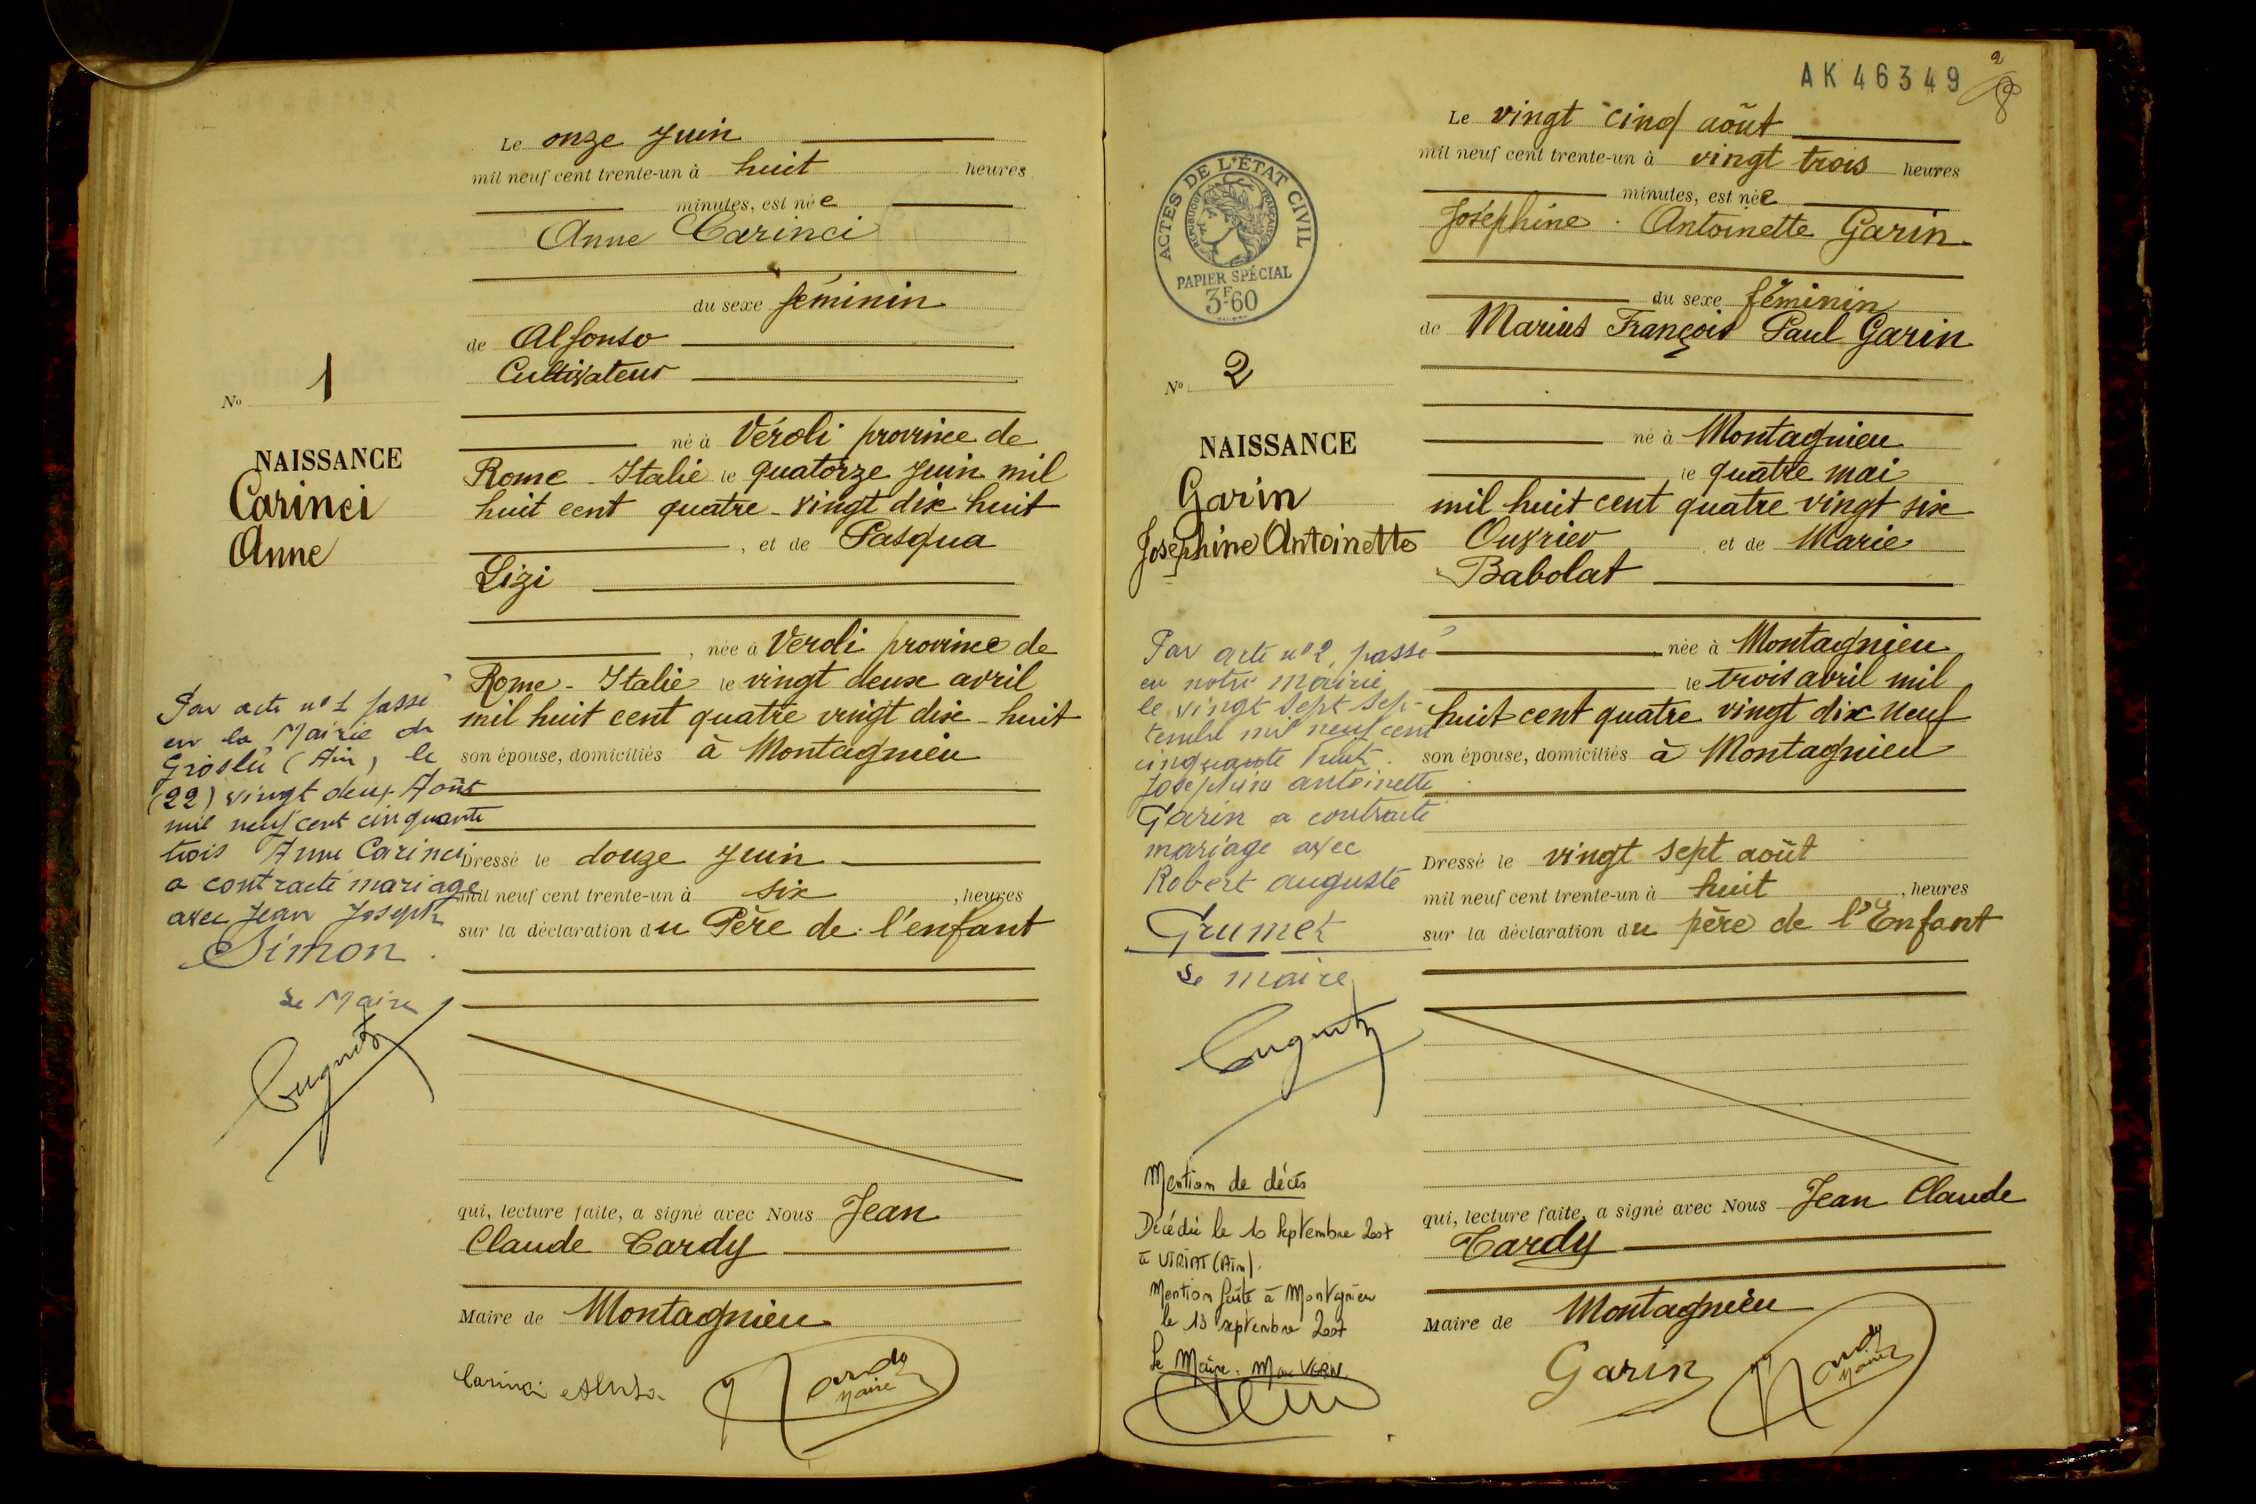 Le onze Juin
mil neuf cent trente-un à huit heures
minutes, est née
Anne Carinci
du sexe féminin
de Alfonso
Cultivateur
né à Véroli province de
Rome - Italie le quatorze Juin mil
huit cent quatre-vingt dix huit
, et de Pasqua
Lizi
, née à Veroli province de
Rome - Italie le vingt deux avril
mil huit cent quatre vingt dix-huit
son épouse, domiciliés à Montagnieu
Dressé le douze Juin
mil neuf cent trente-un à six , heures
sur la déclaration du Père de l'enfant
qui, lecture faite, a signé avec Nous Jean
Claude Cardy
Maire de Montagnieu
Carinci
Maire
No 1
NAISSANCE
Carinci
Anne
Par acte n° 1 passé
en la Mairie de
Groslée (Ain) le
(22) vingt deux Août
mil neuf cent cinquante
trois Anne Carinci
a contracté mariage
avec Jean Joseph
Simon.
Le Maire
AK 46349
2
Le vingt cinq août
mil neuf cent trente-un à vingt trois heures
minutes, est née
Joséphine Antoinette Garin
du sexe féminin
de Marius François Paul Garin
né à Montagnieu
le quatre mai
mil huit cent quatre vingt six
Ouvrier et de Marie
Babolat
, née à Montagnieu
le trois avril mil
huit cent quatre vingt dix neuf
son épouse, domiciliés à Montagnieu
Dressé le vingt sept août
mil neuf cent trente-un à huit , heures
sur la déclaration du père de l'Enfant
qui, lecture faite, a signé avec Nous Jean Claude
Cardy
Maire de Montagnieu
Garin
Maire
ACTES DE L'ÉTAT CIVIL
RÉPUBLIQUE FRANÇAISE
PAPIER SPÉCIAL
3F-60
No 2
NAISSANCE
Garin
Joséphine Antoinette
Par acte n° 2, passé
en notre mairie
le vingt sept sep-
tembre mil neuf cent
cinquante huit.
Joséphine antoinette
Garin a contracté
mariage avec
Robert auguste
Grumet
Le maire
Mention de décès
Décédée le 10 Septembre 2007
à VIRIAT (Ain).
Mention faite à Montagnieu
le 13 septembre 2007
Le Maire.